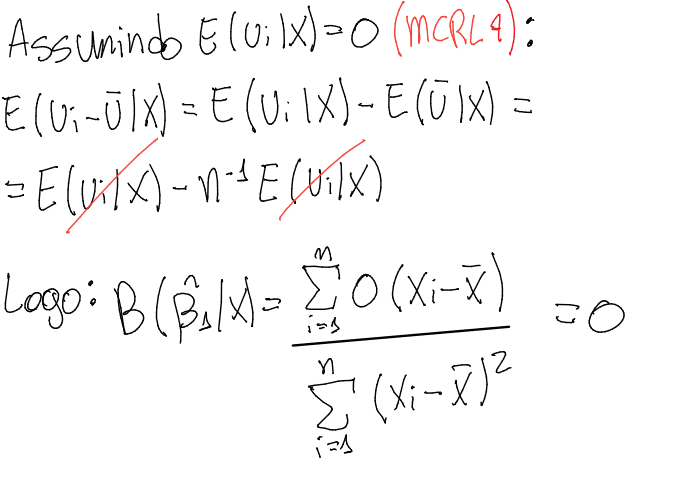 Assumindo E(Ui|X)=0 (MCRL4):
E(Ui-Ū|X) = E(Ui|X) - E(Ū|X) =
= E(Ui|X) - n⁻¹ E(Ui|X)
Logo: B(β̂₁|X) = \frac{\sum_{i=1}^{n} 0(Xi-X̄)}{\sum_{i=1}^{n} (Xi-X̄)²} = 0